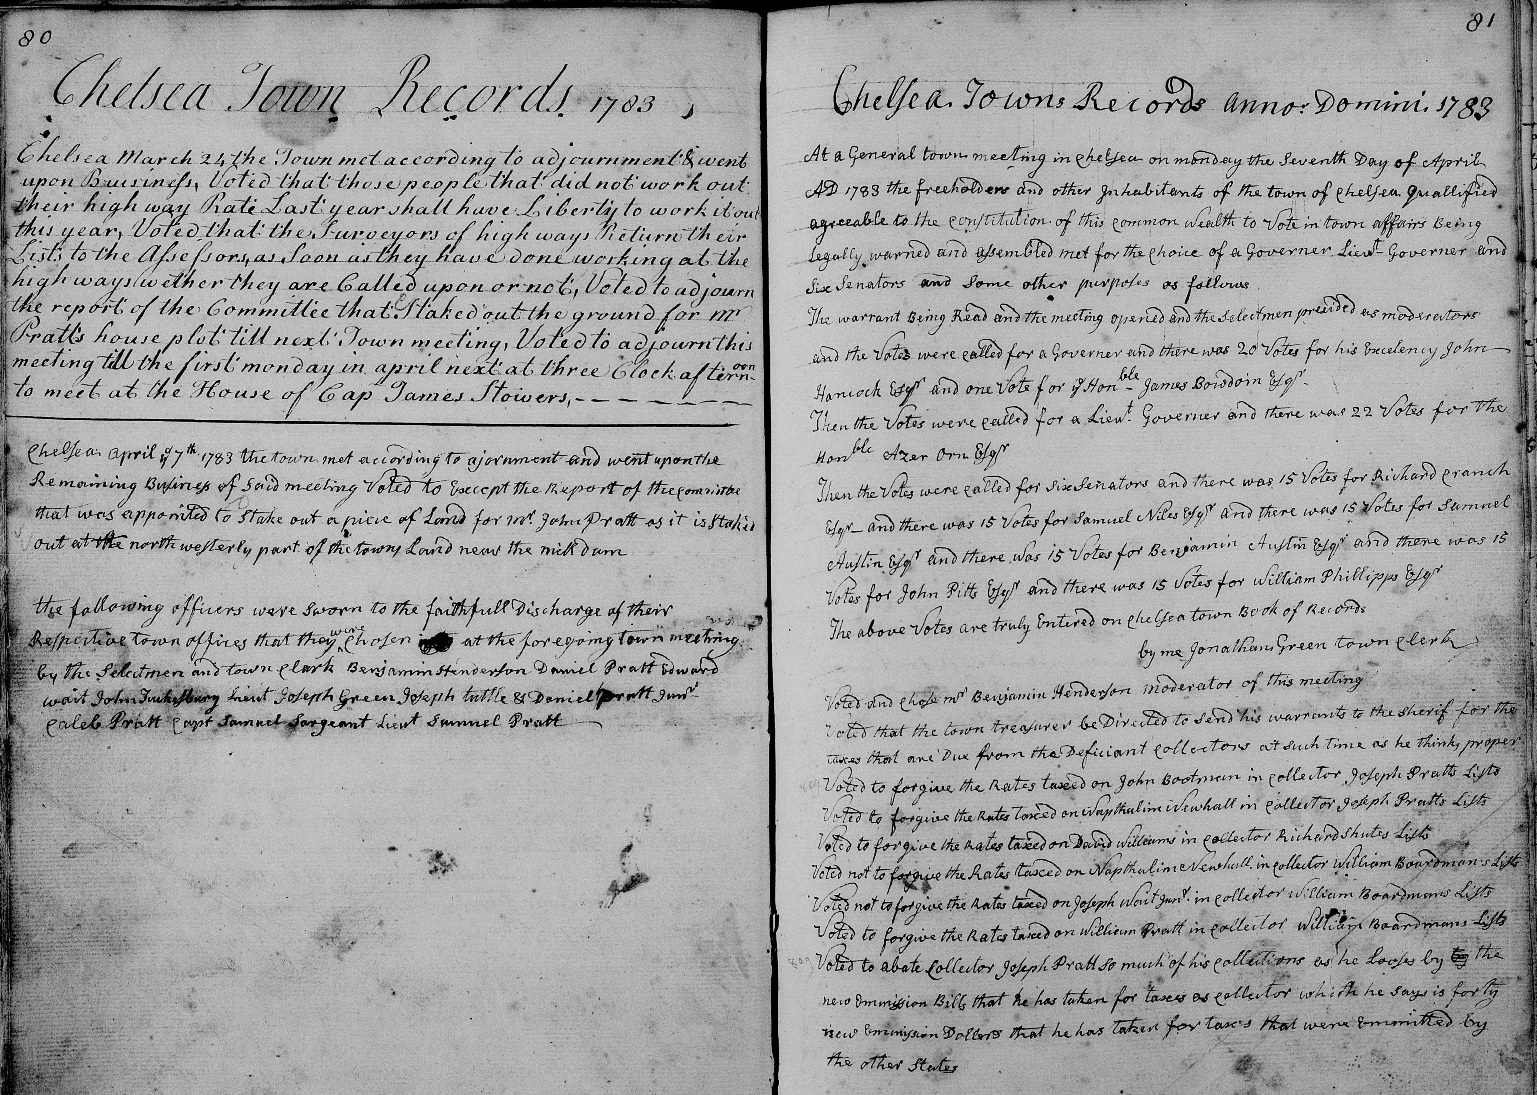 80
Chelsea Town Records. 1783,
Chelsea March 24, the Town met according to adjournment & went
upon Buisiness, Voted that those people that did not work out
their high way Rate Last year shall have Liberty to work it out
this year, Voted that the Surveyors of high ways Return their
Lists to the Assessors, as soon as they have done working at the
high ways wether they are Called upon or not, Voted to adjourn
the report of the Committee that Staked out the ground for Mr
Pratts house plot till next Town meeting, Voted to adjourn this
meeting till the first monday in april next at three Clock afternoon
to meet at the House of Cap James Stowers,
Chelsea April ye 7th 1783 the town met according to ajornment and went upon the
Remaining Business of Said meeting Voted to Except the Report of the committee
that was appointed to Stake out a piece of Land for Mr John Pratt as it is Staked
out at the north westerly part of the towns Land near the
the following officers were Sworn to the faithfull Discharge of their
Respective town offices that they were Chosen at the foregoing town meeting
by the Selectmen and town Clark Benjamin Henderson Daniel Pratt Edward
wait John Tuckesbury Lieut Joseph Green Joseph tuttle & Daniel Pratt Junr
Caleb Pratt Capt Samuel Sargeant Lieut Samuel Pratt
81
Chelsea. Towns Records anno: Domini. 1783
At a General town meeting in Chelsea on monday the Seventh Day of April
AD 1783 the freeholders and other Inhabitants of the town of Chelsea Quallified
agreeable to the constitution of this common Wealth to Vote in town affairs Being
Legally warned and assembled met for the Choice of a Governer Lieut Governer and
Six Senators and Some other purposes as follows
The warrant Being Read and the meeting opened and the Selectmen presided as moderators
and the Votes were called for a Governer and there was 20 Votes for his Excelency John
Hancock Esqr and one Vote for ye Honble James Bowdoin Esqr
Then the Votes were called for a Lieut Governer and there was 22 Votes for the
Honble Azer Orn Esqr
Then the Votes were called for Six Senators and there was 15 Votes for Richard Cranch
Esqr and there was 15 Votes for Samuel Niles Esqr and there was 15 Votes for Sumnel
Austin Esqr and there was 15 Votes for Benjamin Austin Esqr and there was 15
Votes for John Pitts Esqr and there was 15 Votes for William Phillipps Esqr
The above Votes are truly Entered on Chelsea town Book of Records
by me Jonathan Green town Clerk
Voted and Chose mr Benjamin Henderson moderator of this meeting
Voted that the town treasurer be Directed to Send his warrants to the Sherif for the
taxes that are Due from the Deficiant Collectors at Such time as he thinks proper
Voted to forgive the Rates taxed on John Bootman in collector Joseph Pratts Lists
Voted to forgive the Rates taxed on Napthalim Newhall in Collector Joseph Pratts Lists
Voted to forgive the Rates taxed on David Williams in Collector Richard Shutes Lists
Voted not to forgive the Rates taxed on Napthalim Newhall in Collector William Boardman's Lists
Voted not to forgive the Rates taxed on Joseph Wait Junr. in collector William Boardmans Lists
Voted to forgive the Rates taxed on William Pratt in collector William Boardmans Lists
Voted to abate Collector Joseph Pratt So much of his collections as he Looses by the
new Emmission Bills that he has taken for taxes as collector which he Says is forty
new Emmission Dollers that he has taken for taxes that were Emmitted by
the other States